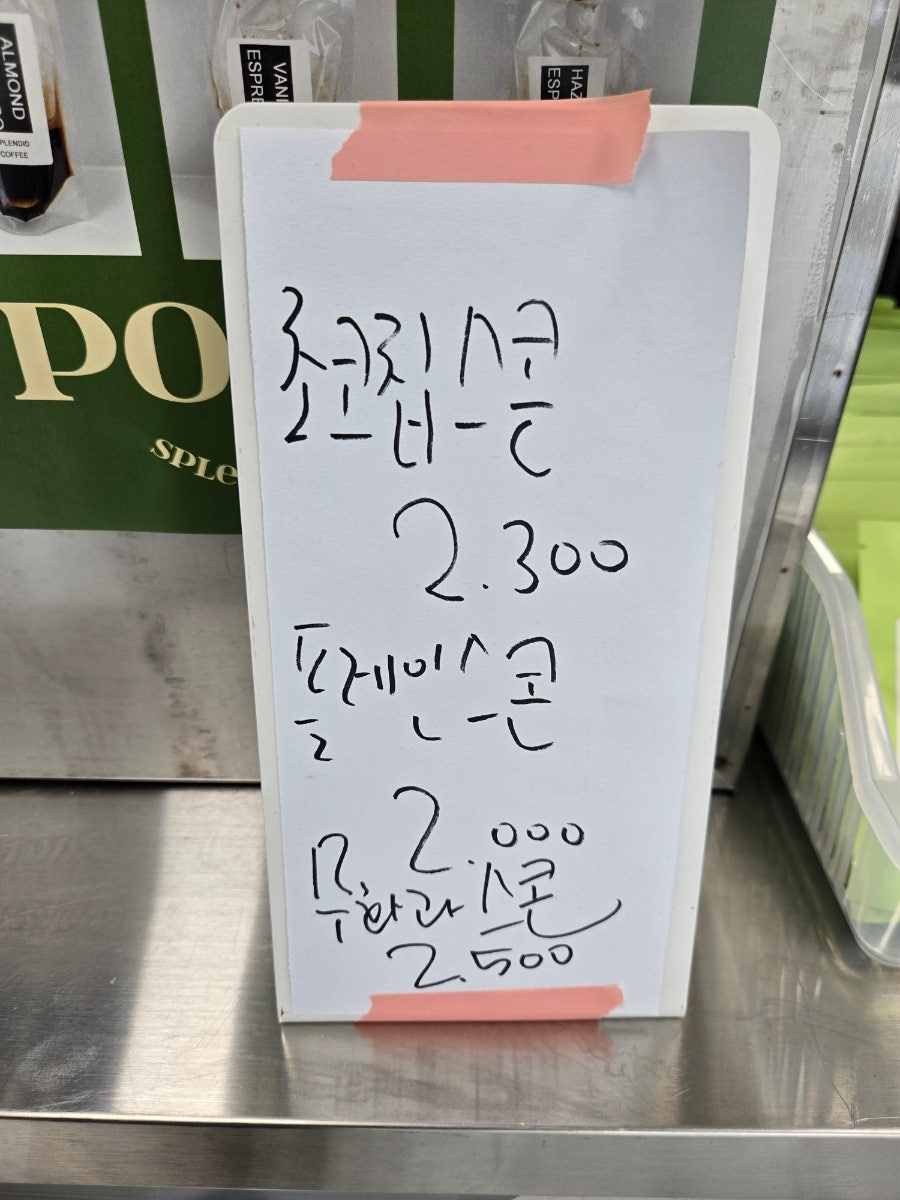 ALMOND
SPLENDID
COFFEE
VANI
ESPRE
HAZ
ESP
PO
SPLE
초코칩스콘
2.300
플레인스콘
2.000
무화과스콘
2.500